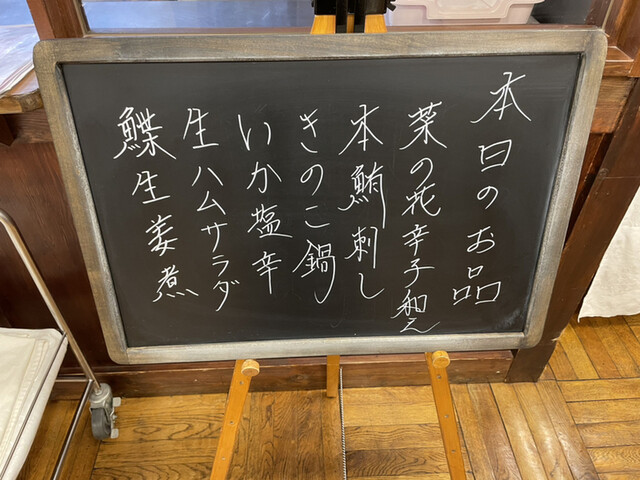 本日のお品
菜の花辛子和え
本鮪刺し
きのこ鍋
いか塩辛
生ハムサラダ
鰈生姜煮